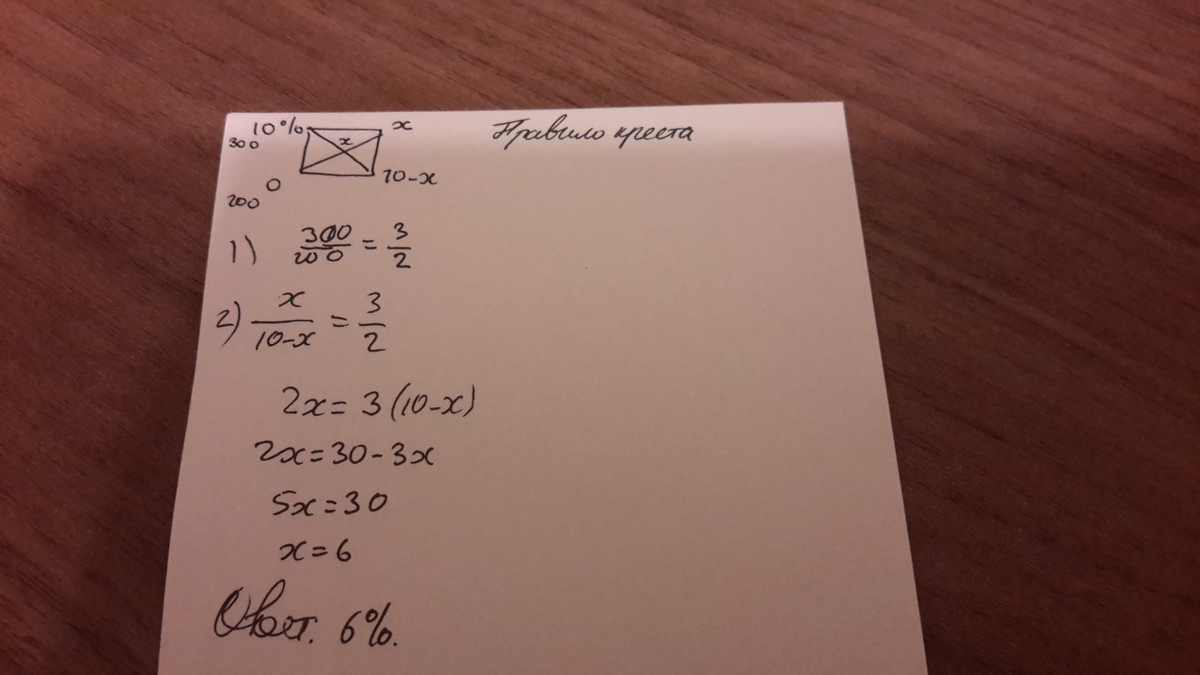 10% x Правило креста
300 x
0 10-x
200
1) 300/200 = 3/2
2) x/10-x = 3/2
2x = 3(10-x)
2x = 30 - 3x
5x = 30
x = 6
Ответ. 6%.